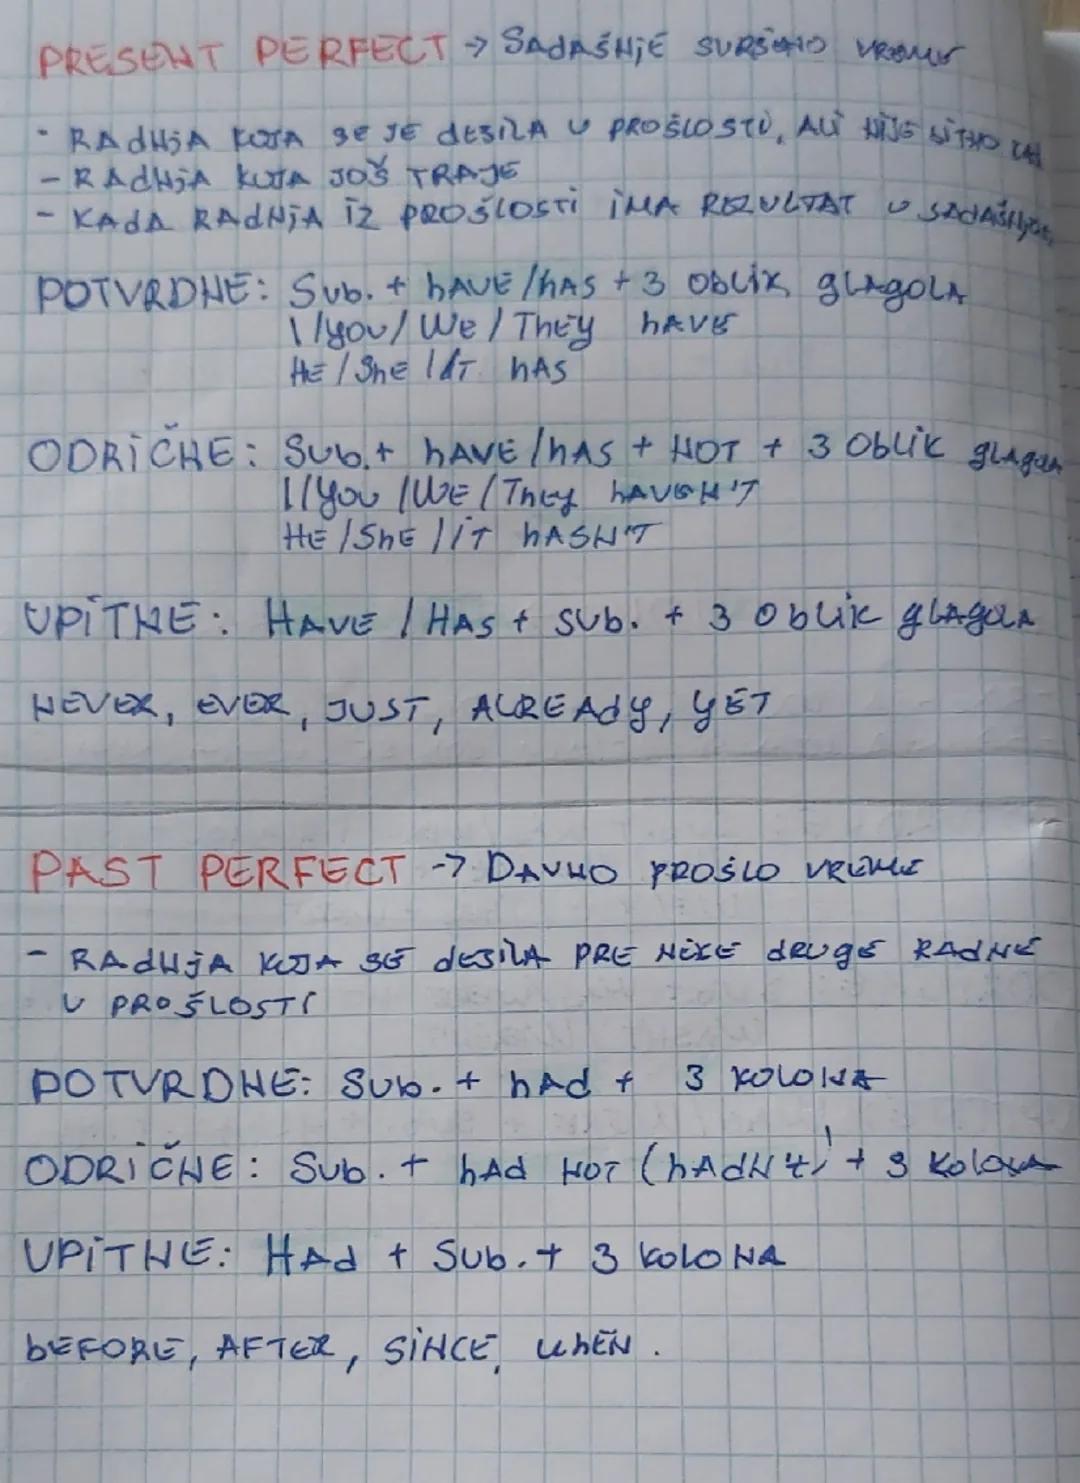 PRESENT PERFECT → SADAŠNJE SVRŠENO VREME
- RADNJA KOJA SE JE DESILA U PROŠLOSTI, ALI NIJE BITNO KAD
- RADNJA KOJA JOŠ TRAJE
- KADA RADNJA IZ PROŠLOSTI IMA REZULTAT U SADAŠNJOSTI
POTVRDNE: Sub. + HAVE/HAS + 3 OBLIK GLAGOLA
I/YOU/WE/THEY HAVE
HE/SHE/IT HAS
ODRIČNE: Sub. + HAVE/HAS + NOT + 3 OBLIK GLAGOLA
I/YOU/WE/THEY HAVEN'T
HE/SHE/IT HASN'T
UPITNE: HAVE/HAS + SUB. + 3 OBLIK GLAGOLA
NEVER, EVER, JUST, ALREADY, YET
PAST PERFECT → DAVNO PROŠLO VREME
- RADNJA KOJA SE DESILA PRE NEKE DRUGE RADNE
U PROŠLOSTI
POTVRDNE: SUB. + HAD + 3 KOLONA
ODRIČNE: SUB. + HAD NOT (HADN'T) + 3 KOLONA
UPITNE: HAD + SUB. + 3 KOLONA
BEFORE, AFTER, SINCE, WHEN.